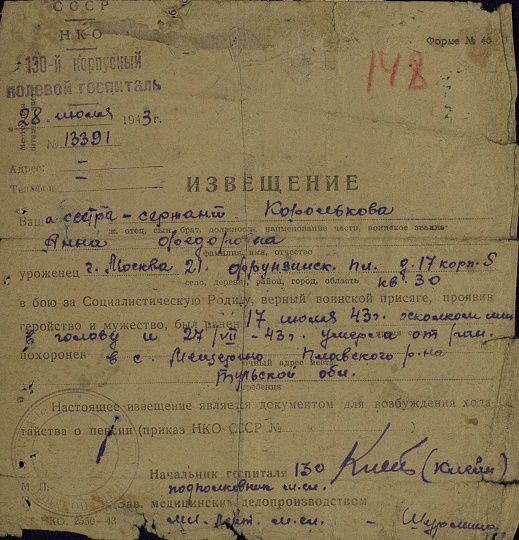 СССР
НКО
130-й корпусный
полевой госпиталь
Форма № 46
148
28 июля 1943 г.
№ 13391
Адрес: —
Телефон —
ИЗВЕЩЕНИЕ
Ваша сестра - сержант Королькова
ж, отец, сын, брат, должность, наименование части, воинское звание
Анна Федоровна
фамилия, имя, отчество
уроженец г. Москва 21. Фрунзинск. пл. д. 17 корп. 5
село, деревня, район, город, область
кв 30
в бою за Социалистическую Родину, верный воинской присяге, проявив
геройство и мужество, был ранен 17 июля 43 г. осколком мин
в голову и 27/VII - 43 г. умерла от ран.
похоронен в с. Мещерино Плавского р-на
Тульской обл.
Настоящее извещение является документом для возбуждения хода
тайства о пенсии (приказ НКО СССР №
Начальник госпиталя 130
подполковник м.сл.
М. П.
Зав. медицинским делопроизводством
НКО. 2550-43
мл. лейт. м.сл. -